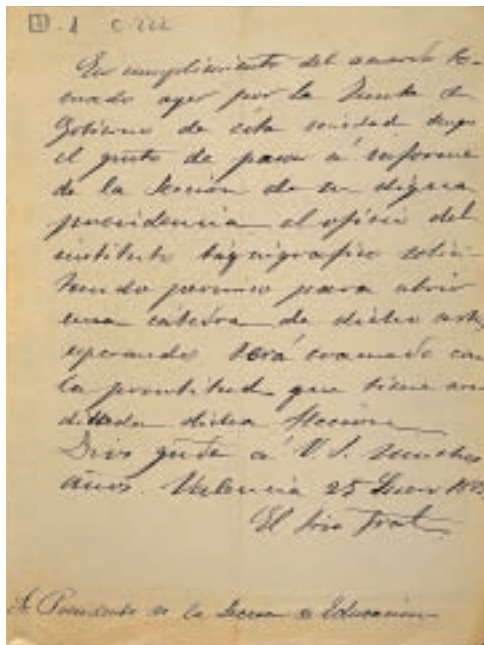 1 - 1 C-222
En cumplimiento del acuerdo to-
mado ayer por la Junta de
Gobierno de esta sociedad tengo
el gusto de pasar á informe
de la Sección de su digna
presidencia el oficio del
instituto taquigrafico solici-
tando permiso para abrir
una cátedra de dicho arte,
esperando será evacuado con
la prontitud que tiene acre-
ditada dicha Sección.
Dios gude á V. S. muchos
años. Valencia 25 Enero
El Srio Gral.
Sr. Presidente de la Sección de Educación